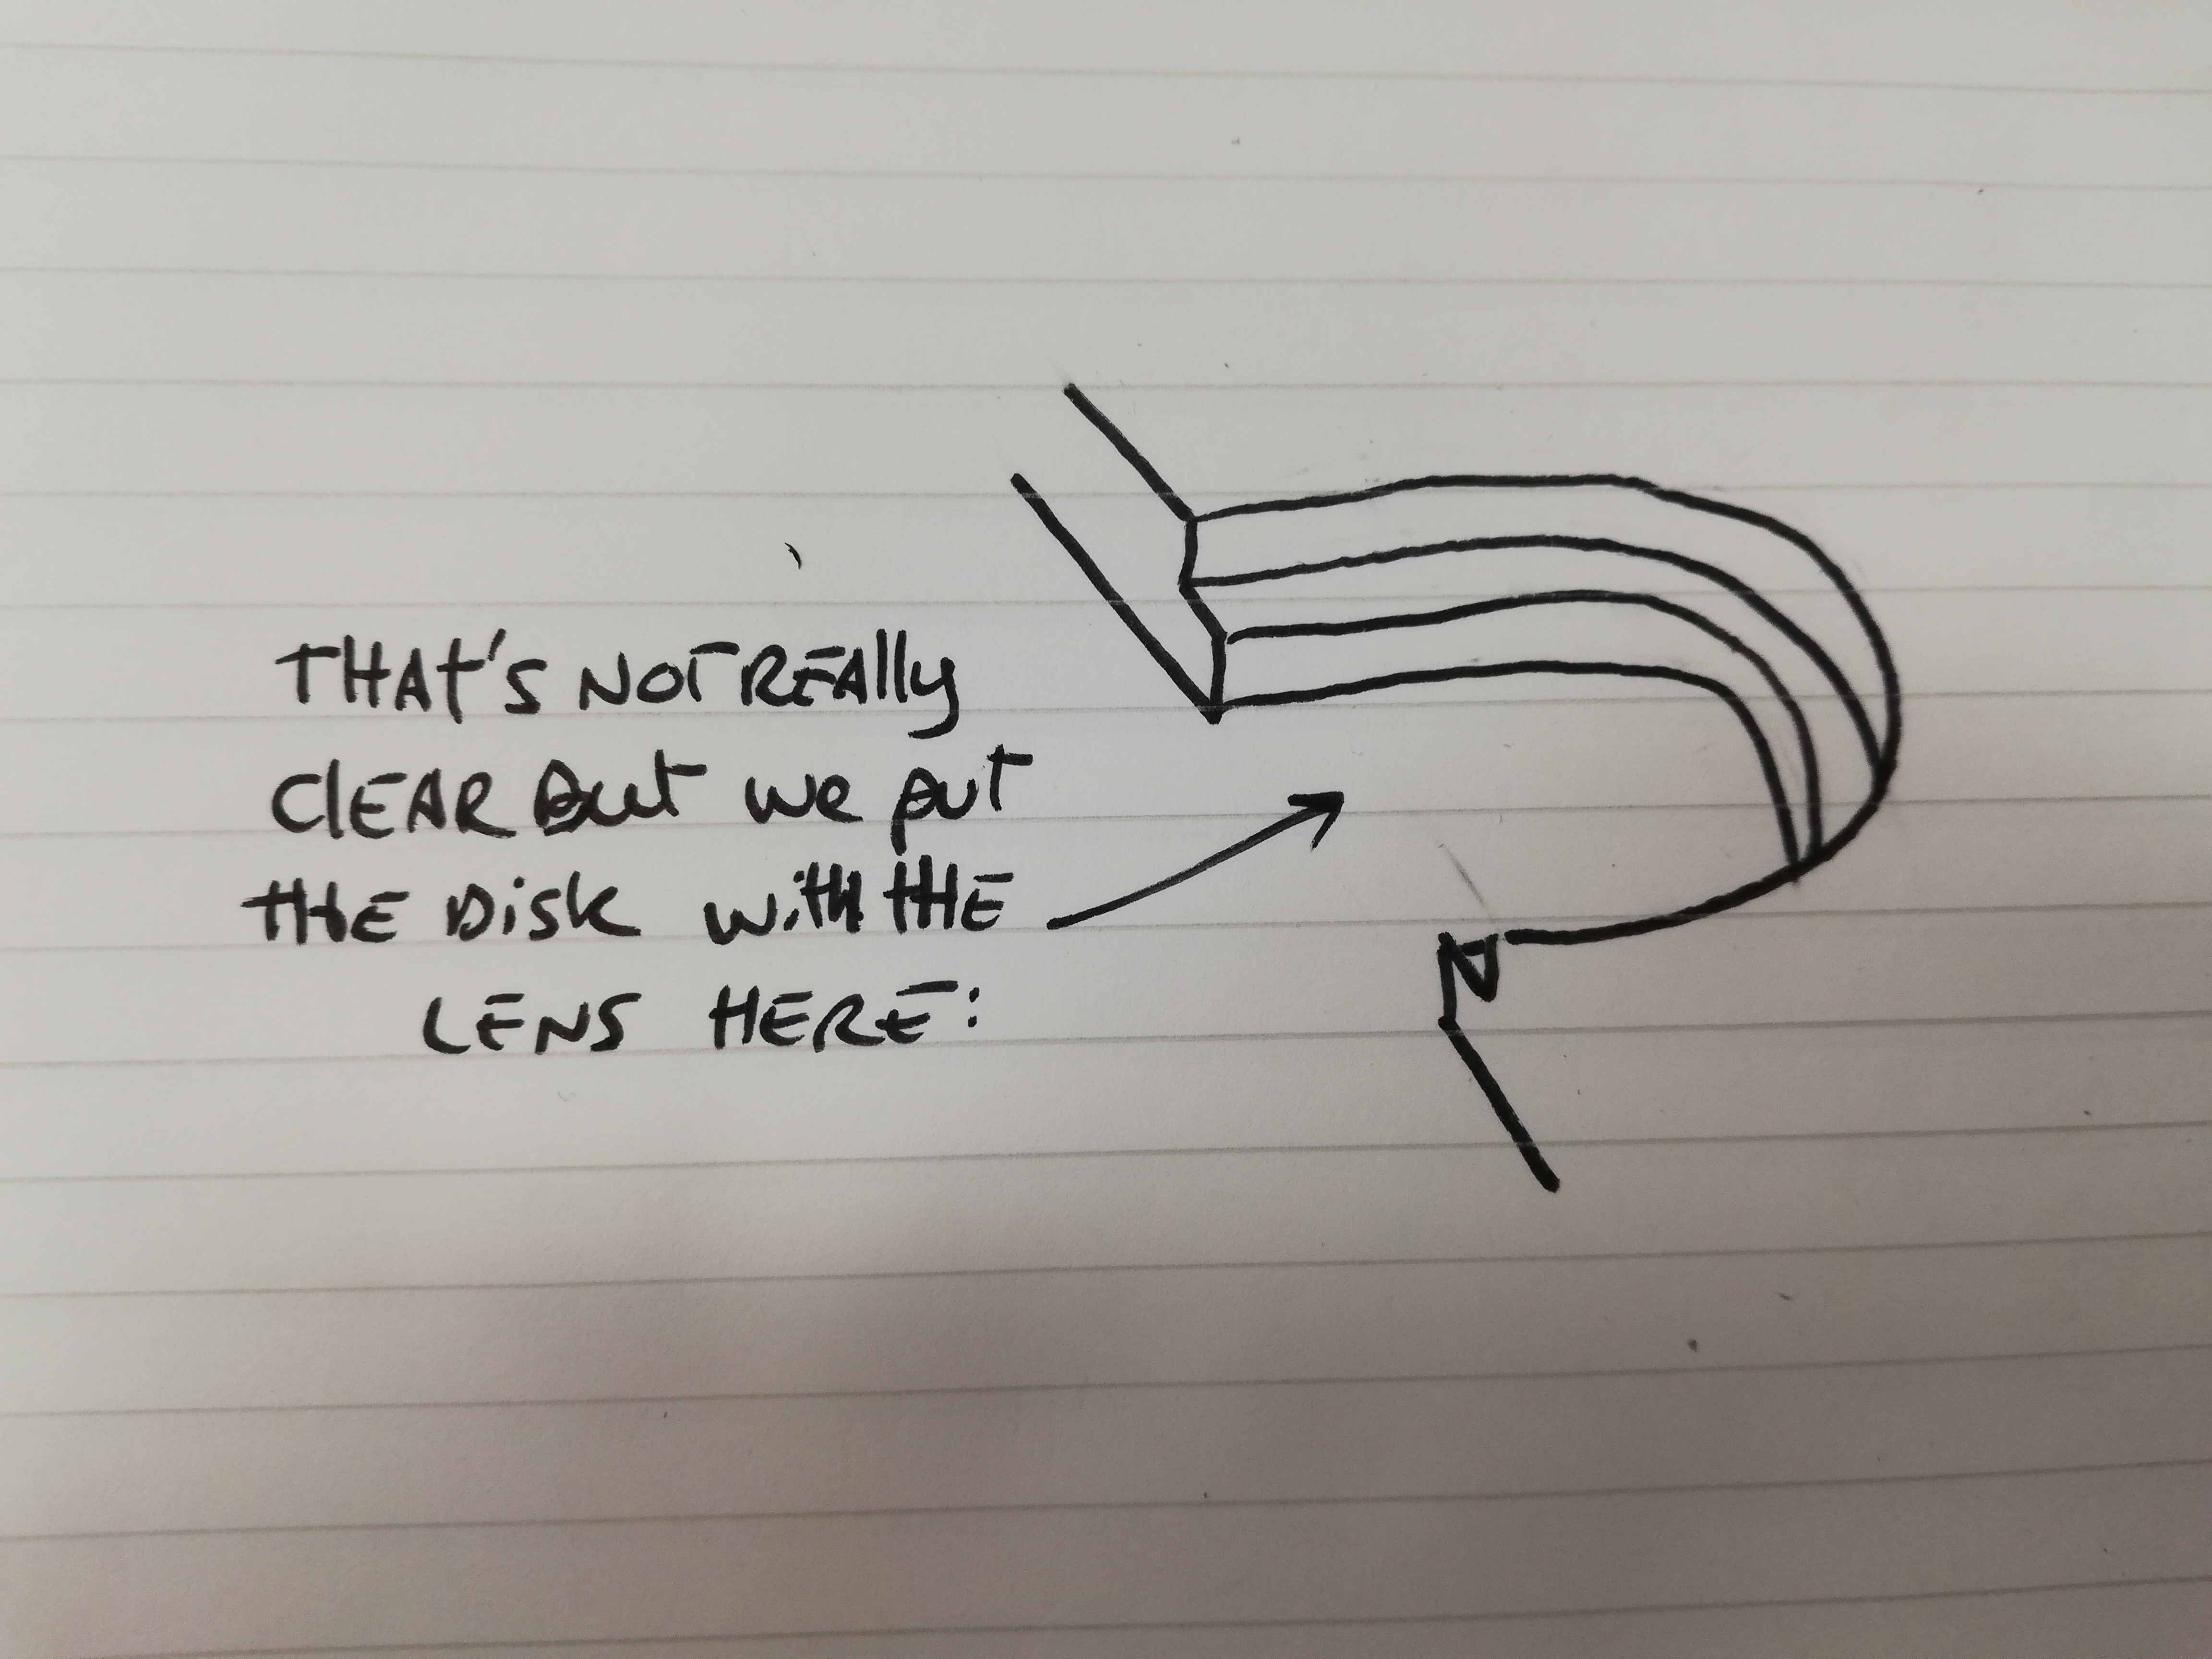 THAT'S NOT REALLY
CLEAR But we put
THE Disk with THE
LENS HERE: